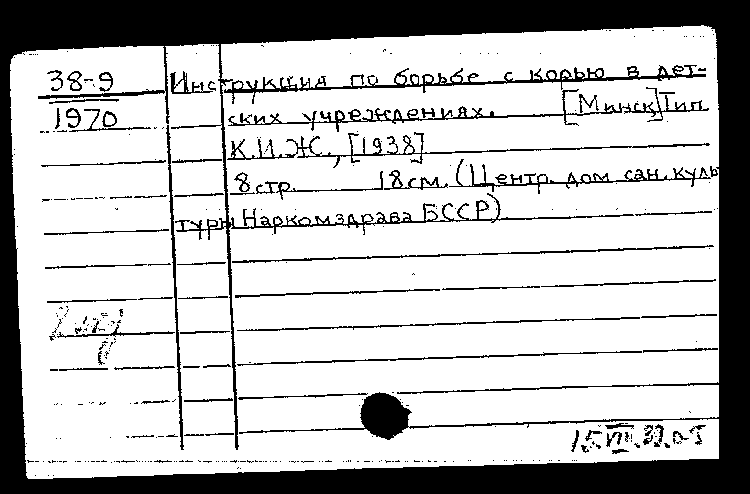 38-9
1970
Инструкция по борьбе с корью в дет-
ских учреждениях. [Минск] Тип.
К.И.Ж., [1938]
8 стр. 18 см. (Центр. дом сан. куль
туры Наркомздрава БССР)
15.VIII.39.